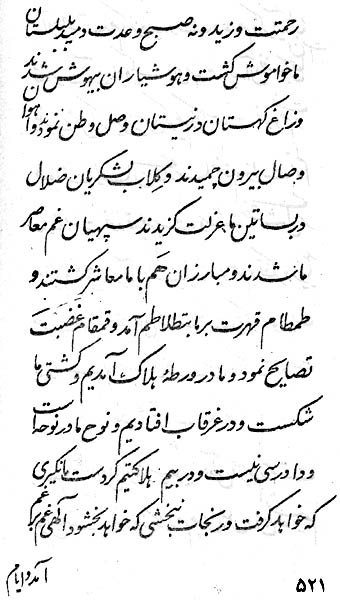 رحمتت وزید و نه صبح وعدت دمید بلبلستان
ما خاموش گشت و هوشیاران بیهوش شدند
و زاغ کهستان در بستان وصل وطن نمودند و آهوان
وصال بیرون چمیدند و کلاب لشکریان ضلال
در بساتین ما عزلت گزیدند سپهیان غم معاصر
ما شدند و مبارزان هم با ما معاشر گشتند و
طمطام قهرت بر ما بتلاطم آمد و قمقام غضبت
تصایح نمود و ما در ورطهٔ هلاک آمدیم و کشتی ما
شکست و در غرقاب افتادیم و نوح ما در نوحه است
و دادرسی نیست و در بیم هلاکتیم گر دست ما نگیری
که خواهد گرفت و ر نجات نبخشی که خواهد بخشود الهی غم بر غم
آمد و ایام
۵۲۱